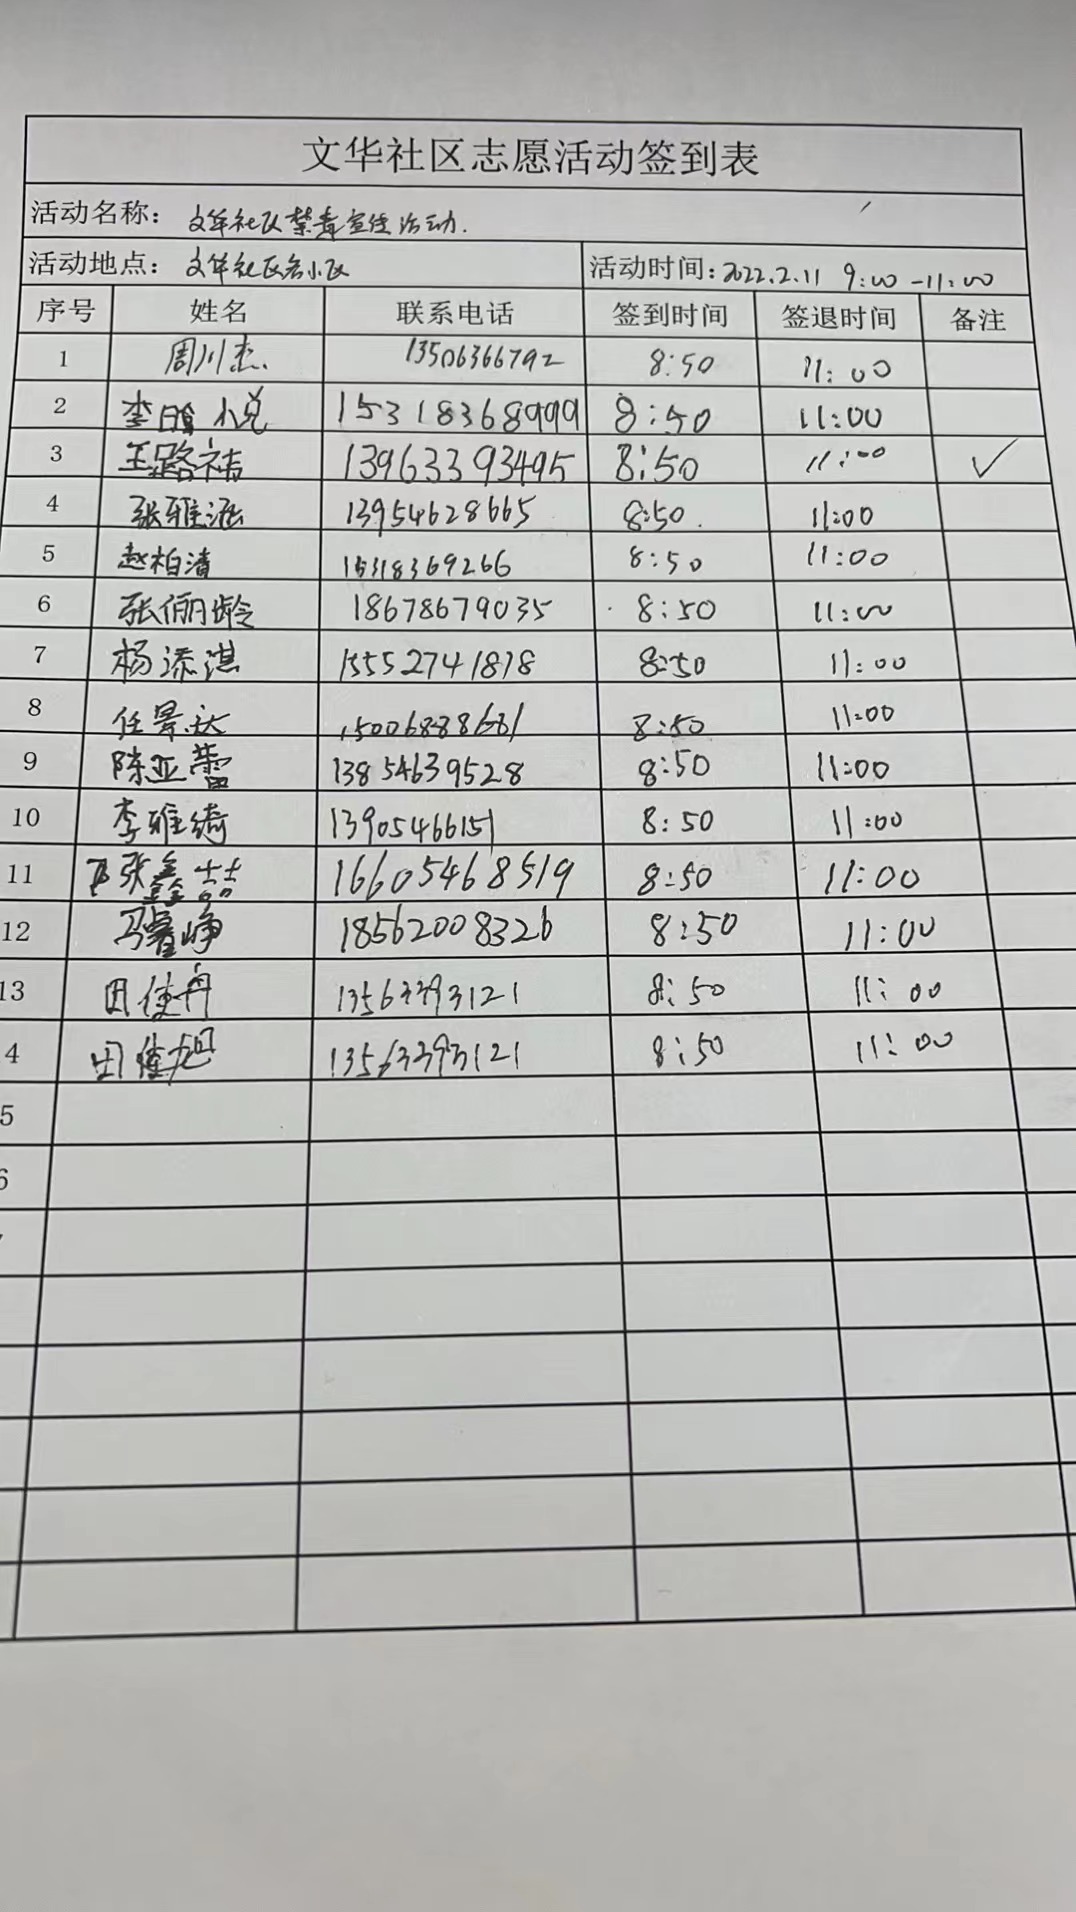 文华社区志愿活动签到表
活动名称： 文华社区禁毒宣传活动.
活动地点： 文华社区各小区 活动时间：2022.2.11 9:00-11:00
序号 姓名 联系电话 签到时间 签退时间 备注
1 周川杰 13506366792 8:50 11:00
2 李 小说 15318368999 8:50 11:00
3 王路祎 13963393495 8:50 11:00 ✓
4 张雅涵 13954628665 8:50. 11:00
5 赵柏清 15318369266 8:50 11:00
6 张俪龄 18678679035 8:50 11:00
7 杨添淇 15552741878 8:50 11:00
8 任景 8:50 11:00
9 陈亚蕾 13854639528 8:50 11:00
10 李雅绮 13905466151 8:50 11:00
11 张鑫喆 16605468519 8:50 11:00
12 马睿峥 18562008326 8:50 11:00
13 田佳冉 13563393121 8:50 11:00
4 田佳旭 13563393121 8:50 11:00
5
6